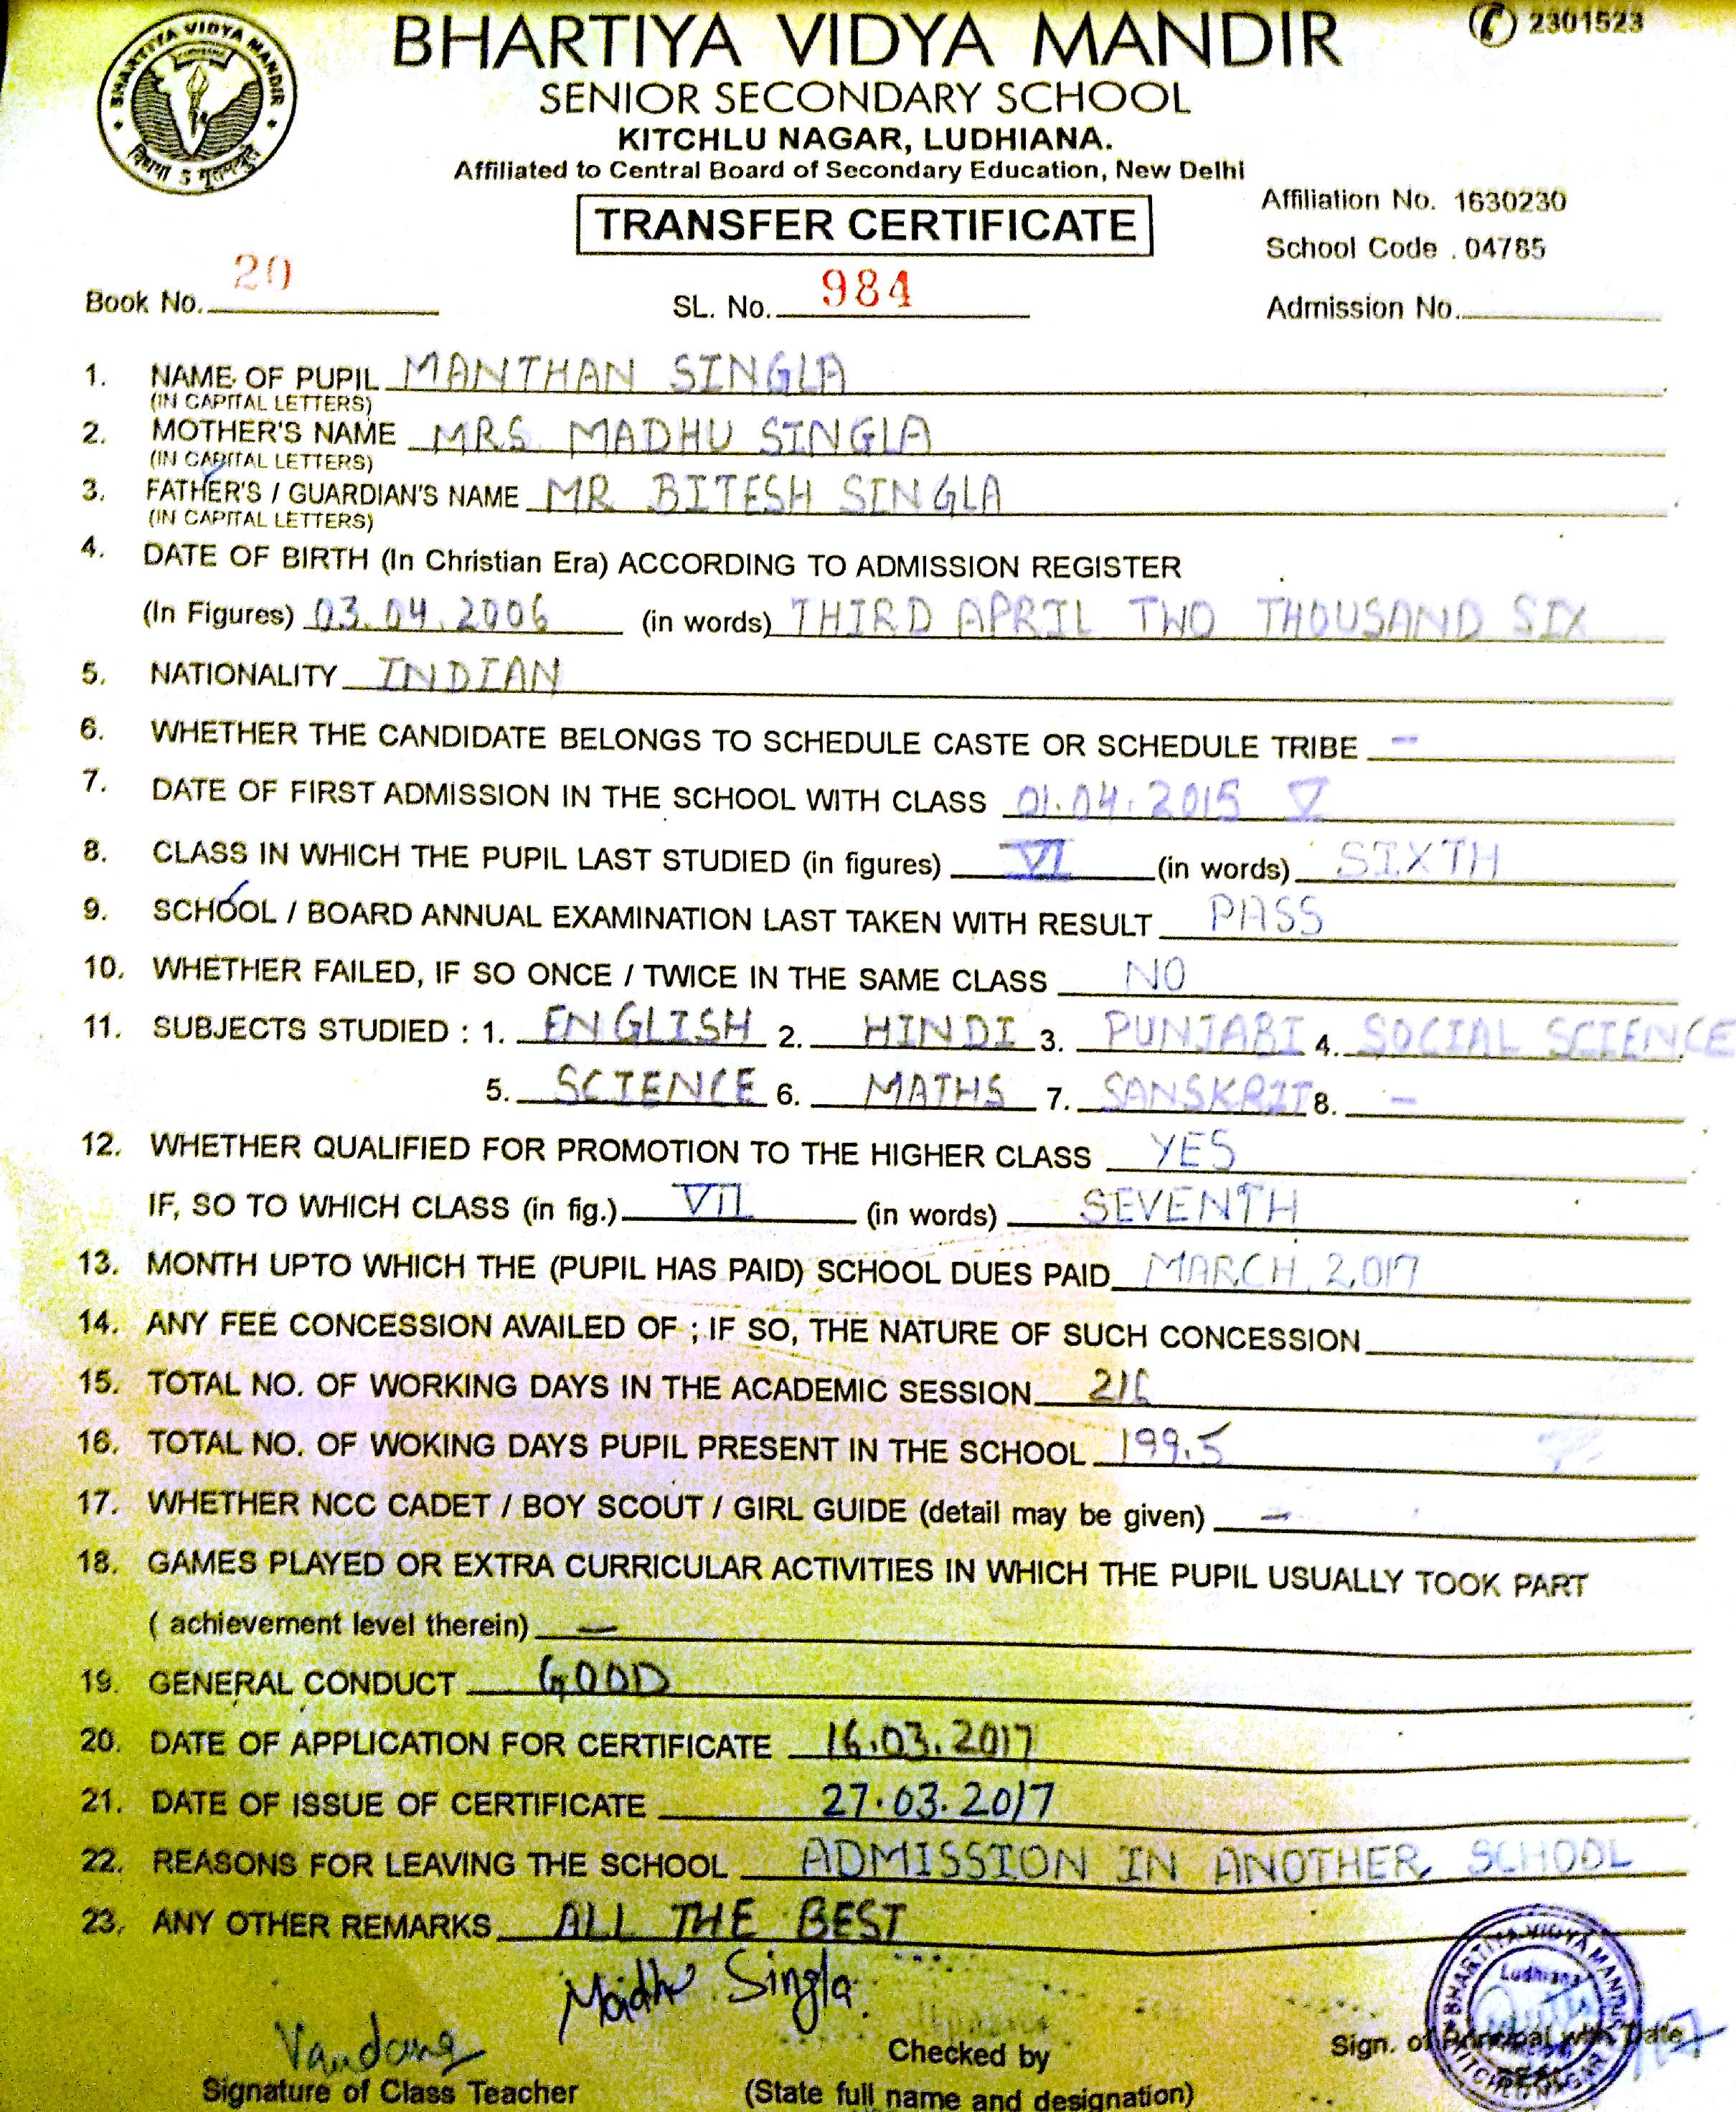 BHARTIYA VIDYA MANDIR
2301523
BHARTIYA VIDYA MANDIR
SENIOR SECONDARY SCHOOL
KITCHLU NAGAR, LUDHIANA.
Affiliated to Central Board of Secondary Education, New Delhi
Affiliation No. 1630230
TRANSFER CERTIFICATE
School Code . 04785
Book No. 20 SL. No. 984 Admission No.
1. NAME OF PUPIL MANTHAN SINGLA
(IN CAPITAL LETTERS)
2. MOTHER'S NAME MRS MADHU SINGLA
(IN CAPITAL LETTERS)
3. FATHER'S / GUARDIAN'S NAME MR BITESH SINGLA
(IN CAPITAL LETTERS)
4. DATE OF BIRTH (In Christian Era) ACCORDING TO ADMISSION REGISTER
(In Figures) 03.04.2006 (in words) THIRD APRIL TWO THOUSAND SIX
5. NATIONALITY INDIAN
6. WHETHER THE CANDIDATE BELONGS TO SCHEDULE CASTE OR SCHEDULE TRIBE –
7. DATE OF FIRST ADMISSION IN THE SCHOOL WITH CLASS 01.04.2015 V
8. CLASS IN WHICH THE PUPIL LAST STUDIED (in figures) VI (in words) SIXTH
9. SCHOOL / BOARD ANNUAL EXAMINATION LAST TAKEN WITH RESULT PASS
10. WHETHER FAILED, IF SO ONCE / TWICE IN THE SAME CLASS NO
11. SUBJECTS STUDIED : 1. ENGLISH 2. HINDI 3. PUNJABI 4. SOCIAL SCIENCE
5. SCIENCE 6. MATHS 7. SANSKRIT 8. –
12. WHETHER QUALIFIED FOR PROMOTION TO THE HIGHER CLASS YES
IF, SO TO WHICH CLASS (in fig.) VII (in words) SEVENTH
13. MONTH UPTO WHICH THE (PUPIL HAS PAID) SCHOOL DUES PAID MARCH, 2017
14. ANY FEE CONCESSION AVAILED OF ; IF SO, THE NATURE OF SUCH CONCESSION
15. TOTAL NO. OF WORKING DAYS IN THE ACADEMIC SESSION 216
16. TOTAL NO. OF WOKING DAYS PUPIL PRESENT IN THE SCHOOL 199.5
17. WHETHER NCC CADET / BOY SCOUT / GIRL GUIDE (detail may be given) –
18. GAMES PLAYED OR EXTRA CURRICULAR ACTIVITIES IN WHICH THE PUPIL USUALLY TOOK PART
( achievement level therein) –
19. GENERAL CONDUCT GOOD
20. DATE OF APPLICATION FOR CERTIFICATE 16.03.2017
21. DATE OF ISSUE OF CERTIFICATE 27.03.2017
22. REASONS FOR LEAVING THE SCHOOL ADMISSION IN ANOTHER SCHOOL
23. ANY OTHER REMARKS ALL THE BEST
Madhu Singla
BHARTIYA VIDYA MANDIR
Ludhiana
KITCHLU NAGAR
Vandana
Signature of Class Teacher
Checked by
(State full name and designation)
Sign. of Principal with Date
SEAL